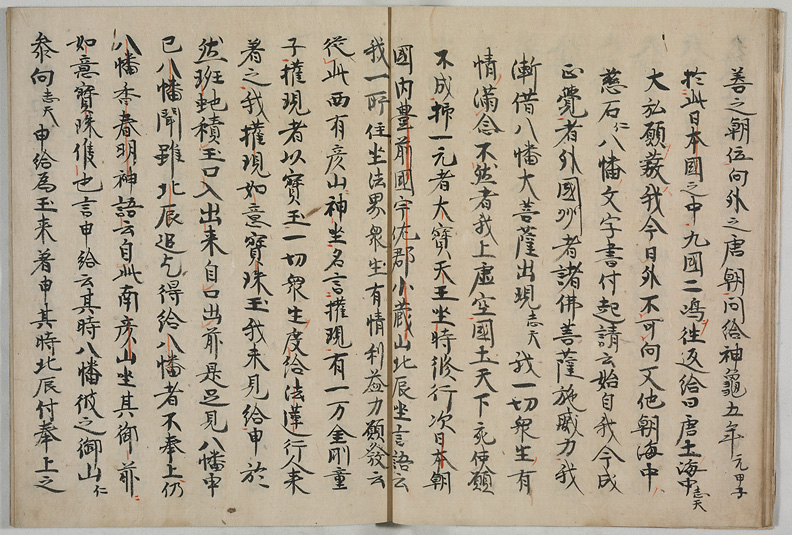 善之朝位向外之唐朝向給神龜五年元甲子
於此日本國之中九國二鳴往返給曰唐土海中志天
大弘願發我今日外不可向又他朝海中
慈石仁八幡文字書付起請云始自我今成
正覺者外國州者諸佛菩薩施威力我
漸借八幡大菩薩出現志天我一切衆生有
情滿念不然者我上虛空國土天下死使願
不成抑一元者大寶天王坐時修行次日本朝
國內豊前國宇佐郡小蔵山北辰坐言語云
我一所住坐法界衆生有情利益力願發云
從此西有彦山神坐名言權現有一万金剛童
子權現者以寶玉一切衆生度給法蓮行人来
着之我權現如意寶珠玉我来見給申於
然班虵積玉口入出来自口出前是足見八幡申
已八幡聞雖北辰追乞得給八幡者不奉上仍
八幡香春明神語云自此南彦山坐其御前
如意寶珠惟也言申給云其時八幡彼之御山仁
参向志天申給為玉来着申其時北辰付奉上之